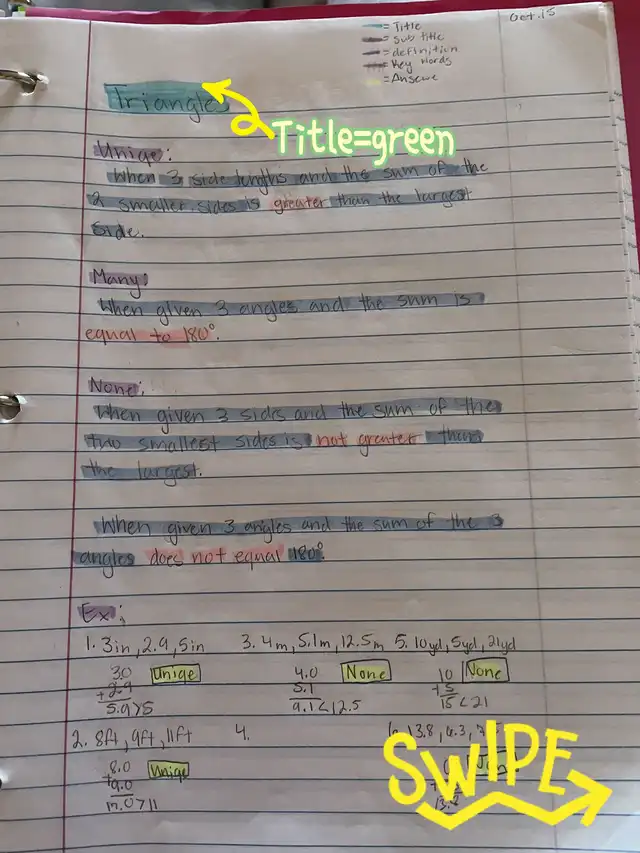 Oct. 15
= Title
= Sub title
= definition
= Key words
= Answe
Triangle
Title=green
Uniqe:
When 3 side lengths and the sum of the
2 smaller sides is greater than the largest
side.
Many:
When given 3 angles and the sum is
equal to 180°.
None:
When given 3 sides and the sum of the
two smallest sides is not greater than
the largest.
When given 3 angles and the sum of the 3
angles does not equal 180°.
Ex:
1. 3in, 2.9, 5in 3. 4m, 5.1m, 12.5m 5. 10yd, 5yd, 21yd
3.0 Uniqe 4.0 None 10 None
+2.9 5.1 +5
5.9>5 9.1<12.5 15<21
2. 8ft, 9ft, 11ft 4. 13.8,
8.0 Uniqe
+9.0
17.0>11
SWIPE